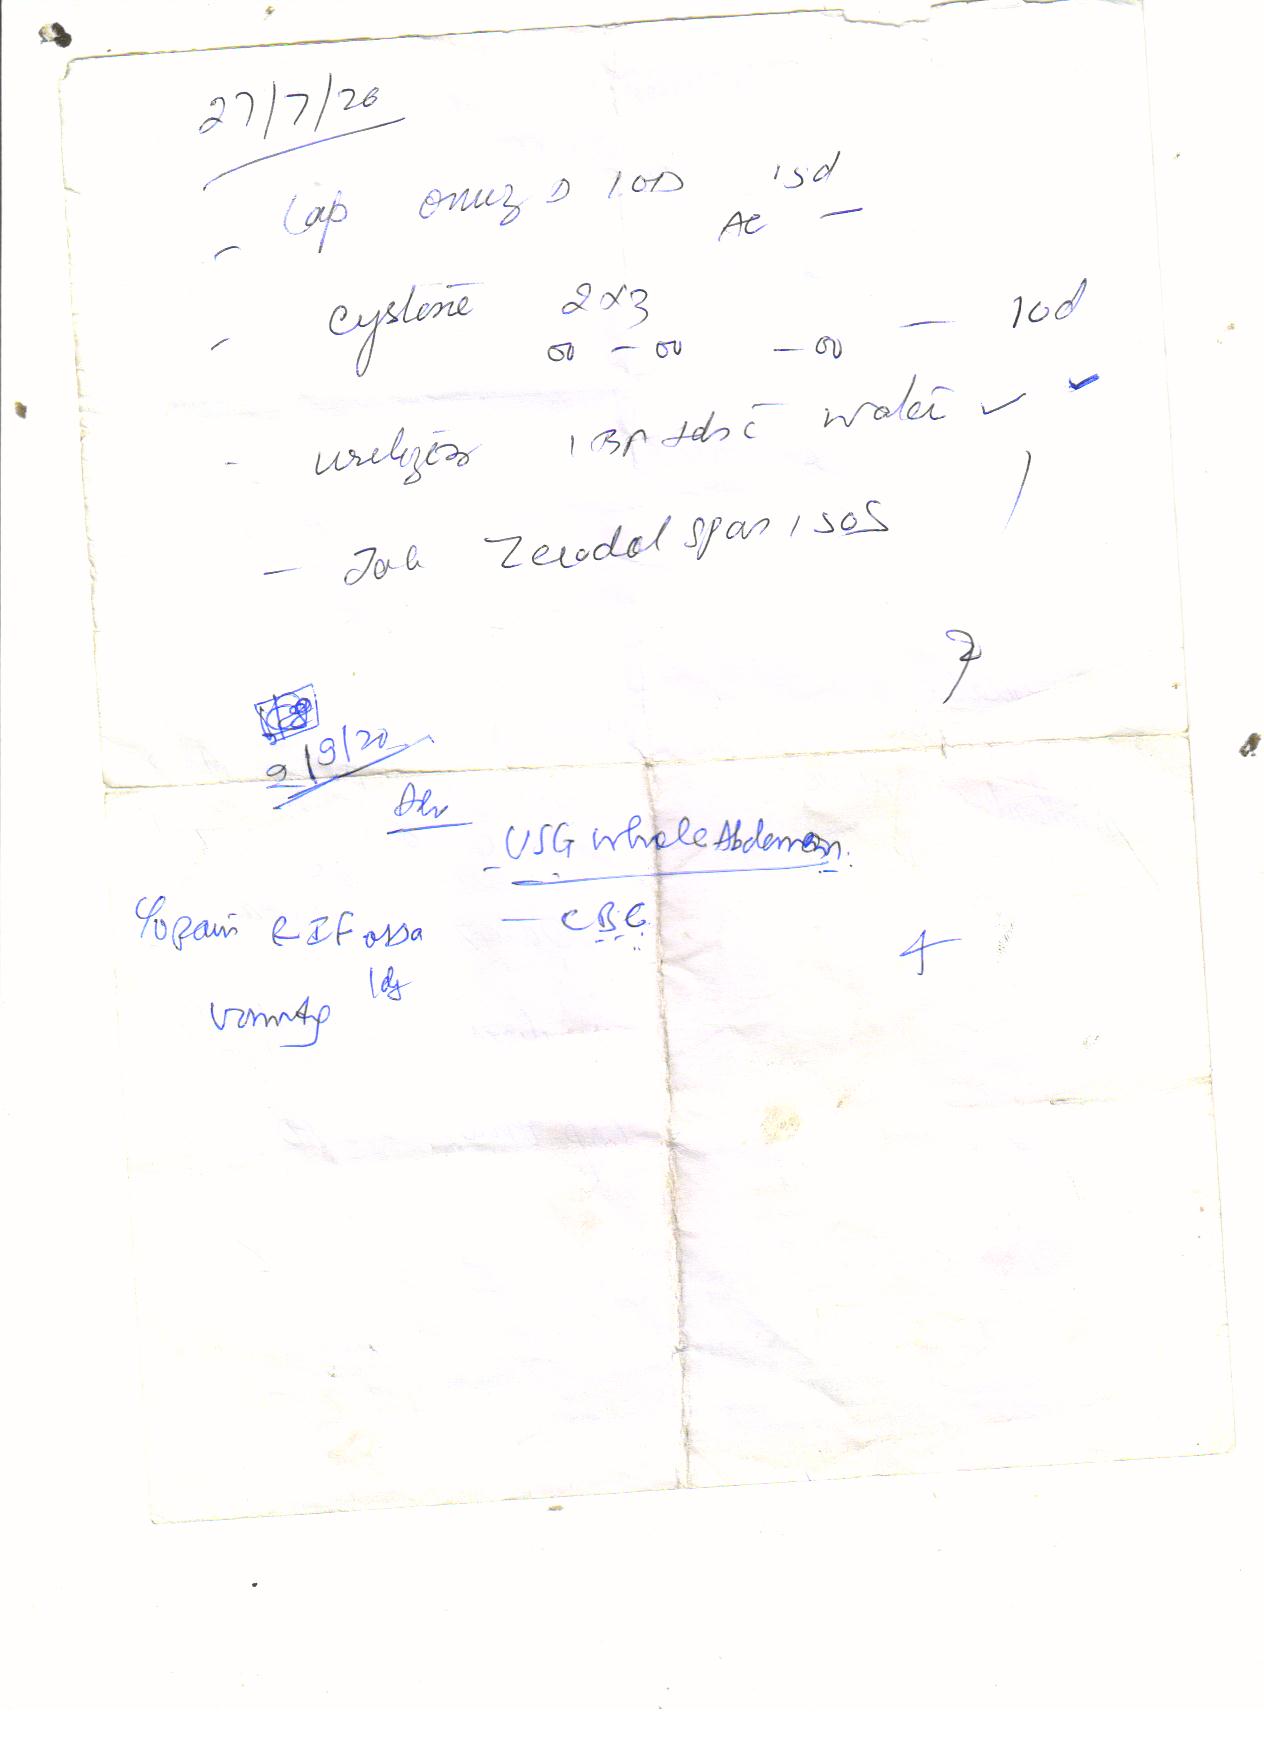 27/7/20
- Cap Omez D 1 OD 15d
AC -
- cystone 2x3 - 10d
00 - 00 - 00
- 1 BP tds c̄ water ✓ ✓
- Tab Zerodol spas 1 SOS
9/9/20
Adv
- USG whole Abdomen.
c/o pain R I Fossa - CBC
1dy
vomitg